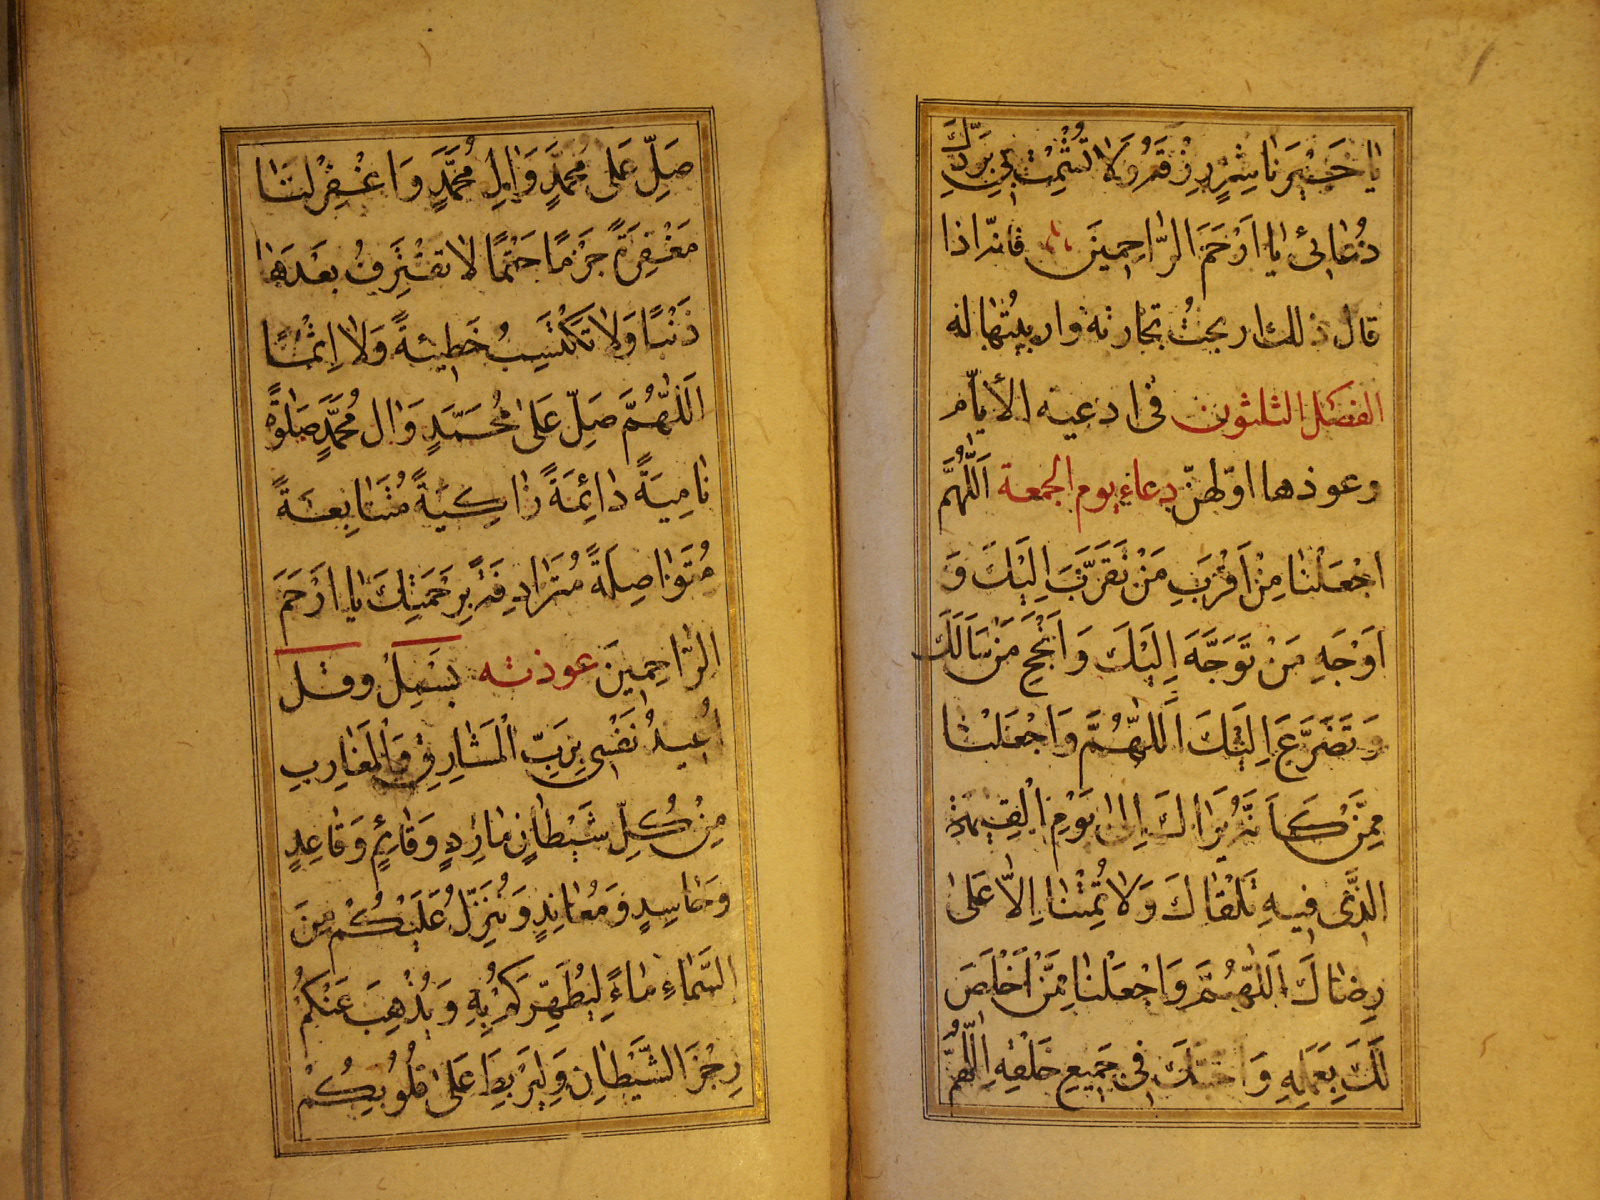 يا خَيْرَ ناشِرٍ رِزْقَهُ وَلا تُشْمِتْ بى بِرَدِّكَ
دُعائى يا اَرْحَمَ الرّاحِمينَ فانه اذا
قال ذلك اربحتُ تجارته واربيتُها له
الفصل الثلثون فى ادعيه الأيّام
وعوذها اوّلهنّ دعاء يوم الجمعة اَللّهُمَّ
اجْعَلْنا مِنْ اَقْرَبِ مَنْ تَقَرَّبَ اِلَيْكَ وَ
اَوْجَهِ مَنْ تَوَجَّهَ اِلَيْكَ وَاَنْجَحِ مَنْ سَاَلَكَ
وَتَضَرَّعَ اِلَيْكَ اَللّهُمَّ وَاجْعَلْنا
مِمَّنْ كَاَنَّهُ يَراكَ اِلى يَوْمِ الْقِيمَةِ
الَّذى فيهِ تَلْقاكَ وَلا تُمِتْنا اِلاّ عَلى
رِضاكَ اَللّهُمَّ وَاجْعَلْنا مِمَّنْ اَخْلَصَ
لَكَ بِعَمَلِهِ وَاَحَبَّكَ فى جَميعِ خَلْقِهِ اَللّهُمَّ
صَلِّ عَلى مُحَمَّدٍ وَالِ مُحَمَّدٍ وَاغْفِرْ لَنا
مَغْفِرَةً جَزْمًا حَتْمًا لا نَقْتَرِفُ بَعْدَها
ذَنْبًا وَلا نَكْتَسِبُ خَطيئَةً وَلا اِثْمًا
اَللّهُمَّ صَلِّ عَلى مُحَمَّدٍ وَالِ مُحَمَّدٍ صَلوةً
نامِيَةً دائِمَةً زاكِيَةً مُتَتابِعَةً
مُتَواصِلَةً مُتَرادِفَةً بِرَحْمَتِكَ يا اَرْحَمَ
الرّاحِمينَ عوذته بَسْمِلْ وقل
اُعيذُ نَفْسى بِرَبِّ الْمَشارِقِ وَالْمَغارِبِ
مِنْ كُلِّ شَيْطانٍ مارِدٍ وَقائِمٍ وَقاعِدٍ
وَحاسِدٍ وَمُعانِدٍ وَيُنَزِّلُ عَلَيْكُمْ مِنَ
السَّماءِ ماءً لِيُطَهِّرَكُمْ بِهِ وَيُذْهِبَ عَنْكُمْ
رِجْزَ الشَّيْطانِ وَلِيَرْبِطَ عَلى قُلُوبِكُمْ